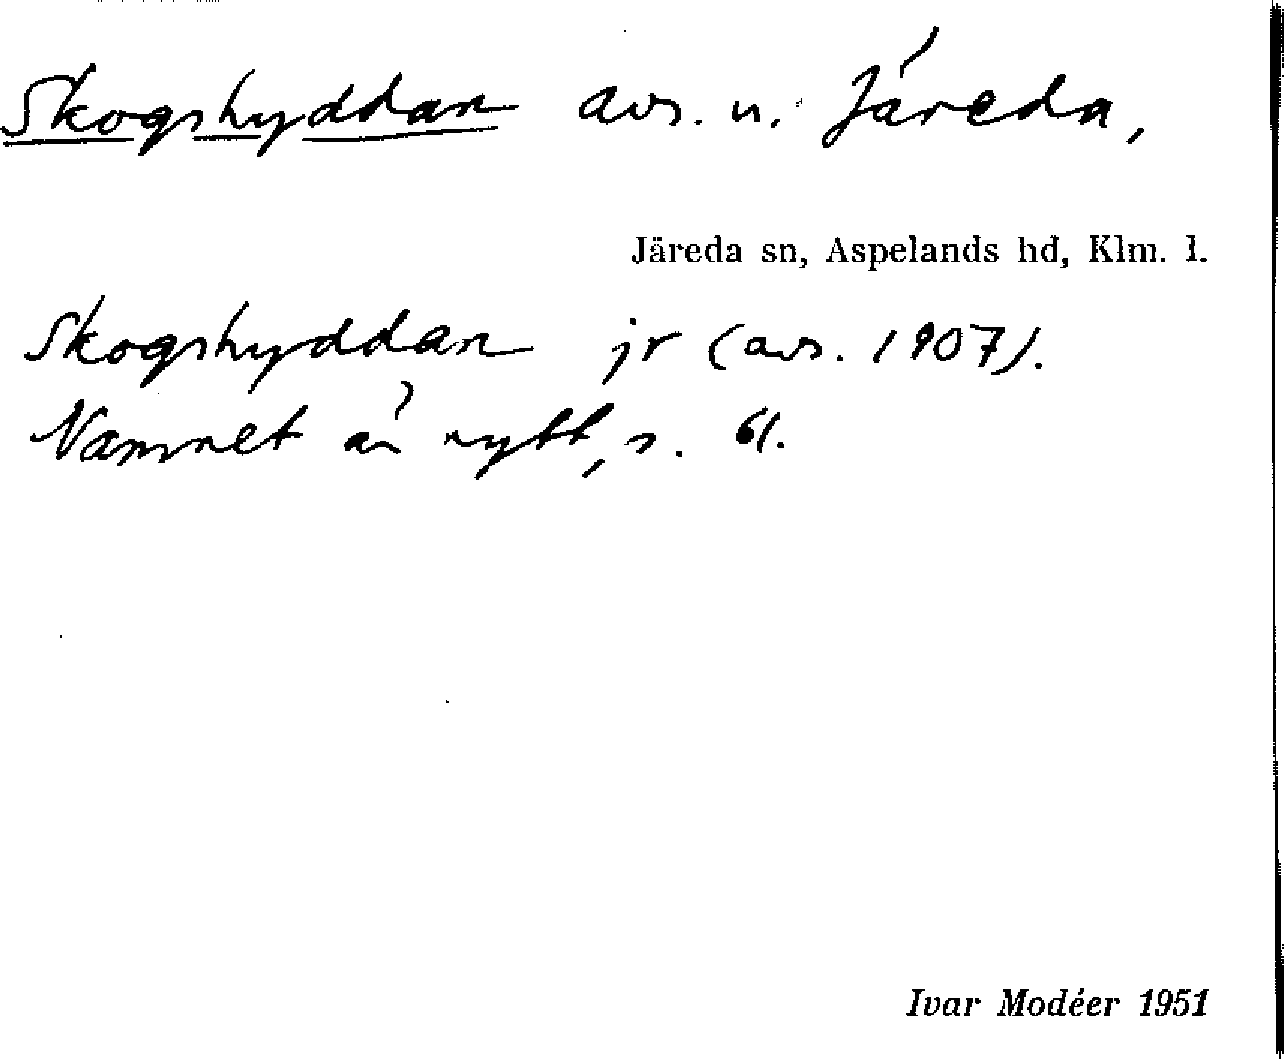 Skogshyddan avs. u. Järeda,
Järeda sn, Aspelands hd, Klm. l.
Skogshyddan jr (avs. 1907).
Namnet är nytt, s. 61.
Ivar Modéer 1951